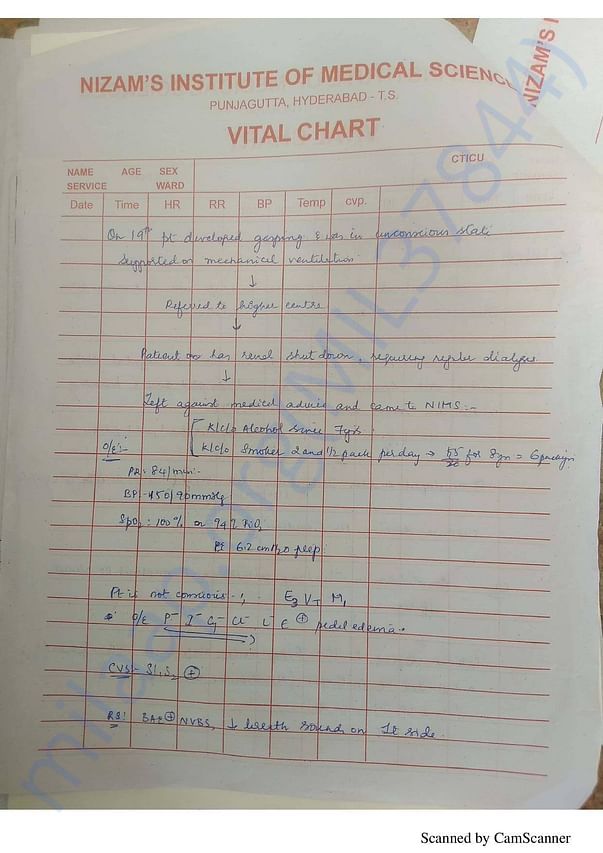 NIZAM'S INSTITUTE OF MEDICAL SCIENC
NIZAM'S I
PUNJAGUTTA, HYDERABAD - T.S.
VITAL CHART
CTICU
NAME AGE SEX
SERVICE WARD
Date Time HR RR BP Temp cvp.
On 19th pt developed gasping & was in unconscious state
supported on mechanical ventilation
↓
Referred to higher centre
↓
Patient has renal shutdown, requiring regular dialysis
↓
Left against medical advice and came to NIMS :-
K/c/o Alcohol since 7yrs
O/E :- K/c/o Smoker 2 and 1/2 pack per day → for 8yrs = 6 pack yrs
PR : 84/min
BP - 150/90mmHg
SpO2 : 100% on 94% FiO2
6.2 cmH2O peep
Pt is not conscious - , E3 VT M1
O/E P- I- C- Cl- L- E ⊕ pedal edema
CVS :- S1, S2 ⊕
RS: BAE ⊕ NVBS, ↓ breath sounds on side.
milaap.org(MIL37844)
Scanned by CamScanner